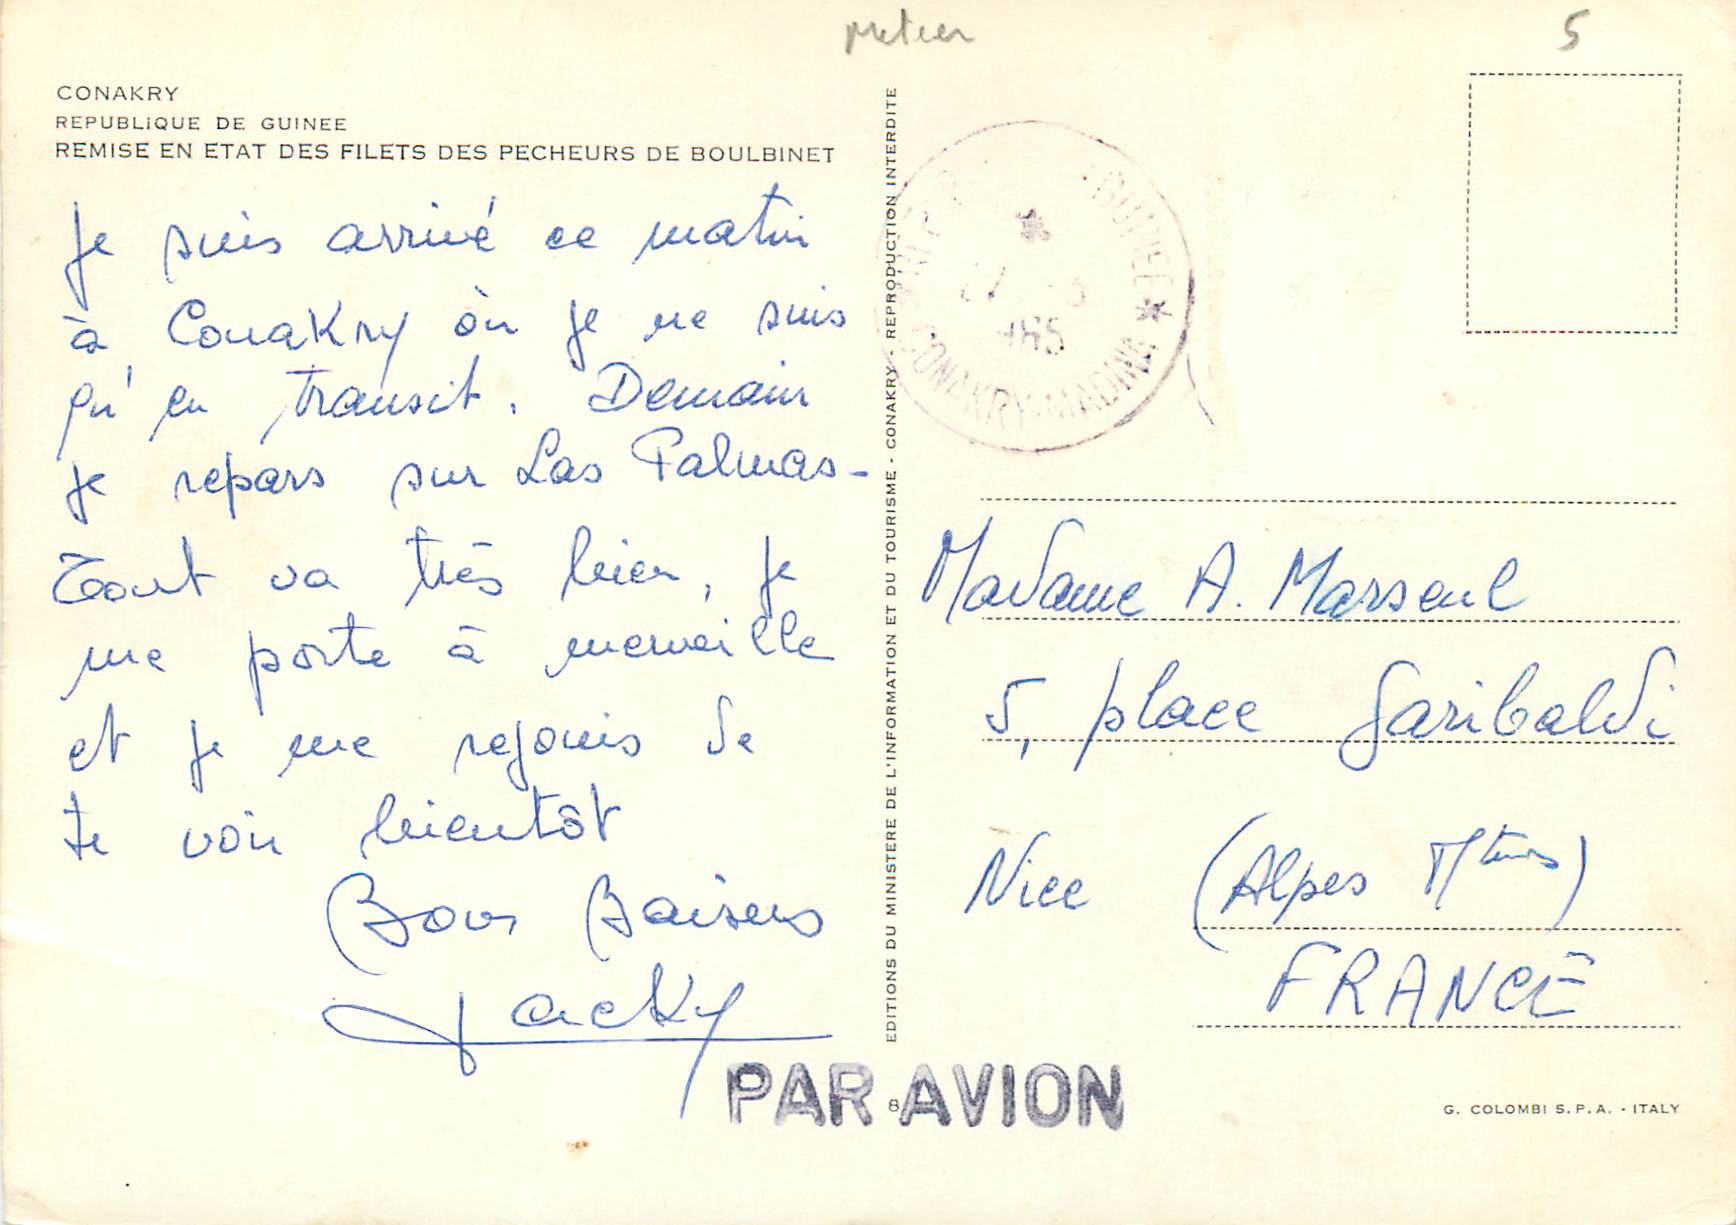 Metier
5
CONAKRY
REPUBLIQUE DE GUINEE
REMISE EN ETAT DES FILETS DES PECHEURS DE BOULBINET
Je suis arrivé ce matin
à Conakry où je ne suis
qu'en transit. Demain
je repars sur Las Palmas-
Tout va très bien, je
me porte à merveille
et je me rejouis de
te voir bientôt
Bons Baisers
Jacky
EDITIONS DU MINISTERE DE L'INFORMATION ET DU TOURISME - CONAKRY - REPRODUCTION INTERDITE
GUINEE
CONAKRY-MADINA
Madame A. Marseul
5, place Garibaldi
Nice (Alpes Mtimes)
FRANCE
PAR AVION
8
G. COLOMBI S.P.A. - ITALY